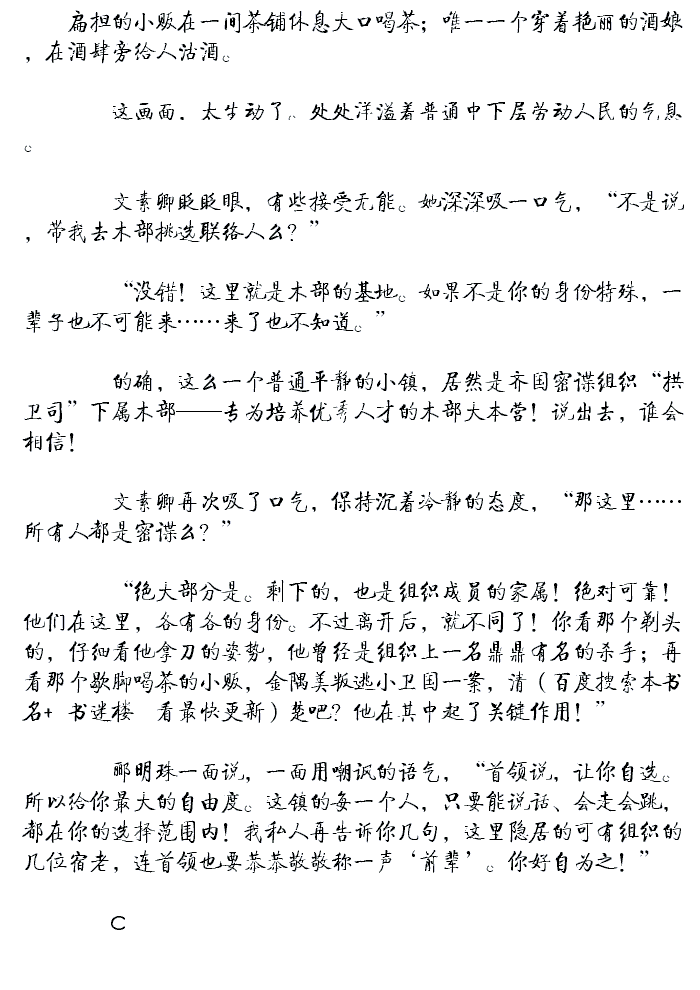 扁担的小贩在一间茶铺休息大口喝茶；唯一一个穿着艳丽的酒娘
，在酒肆旁给人沽酒。
这画面，太生动了。处处洋溢着普通中下层劳动人民的气息
。
文素卿眨眨眼，有些接受无能。她深深吸一口气，“不是说
，带我去木部挑选联络人么？”
“没错！这里就是木部的基地。如果不是你的身份特殊，一
辈子也不可能来……来了也不知道。”
的确，这么一个普通平静的小镇，居然是齐国密谍组织“拱
卫司”下属木部——专为培养优秀人才的木部大本营！说出去，谁会
相信！
文素卿再次吸了口气，保持沉着冷静的态度，“那这里……
所有人都是密谍么？”
“绝大部分是。剩下的，也是组织成员的家属！绝对可靠！
他们在这里，各有各的身份。不过离开后，就不同了！你看那个剃头
的，仔细看他拿刀的姿势，他曾经是组织上一名鼎鼎有名的杀手；再
看那个歇脚喝茶的小贩，金隅美叛逃小卫国一案，清（百度搜索本书
名+ 书迷楼 看最快更新）楚吧？他在其中起了关键作用！”
郦明珠一面说，一面用嘲讽的语气，“首领说，让你自选。
所以给你最大的自由度。这镇的每一个人，只要能说话、会走会跳，
都在你的选择范围内！我私人再告诉你几句，这里隐居的可有组织的
几位宿老，连首领也要恭恭敬敬称一声‘前辈’。你好自为之！”
C